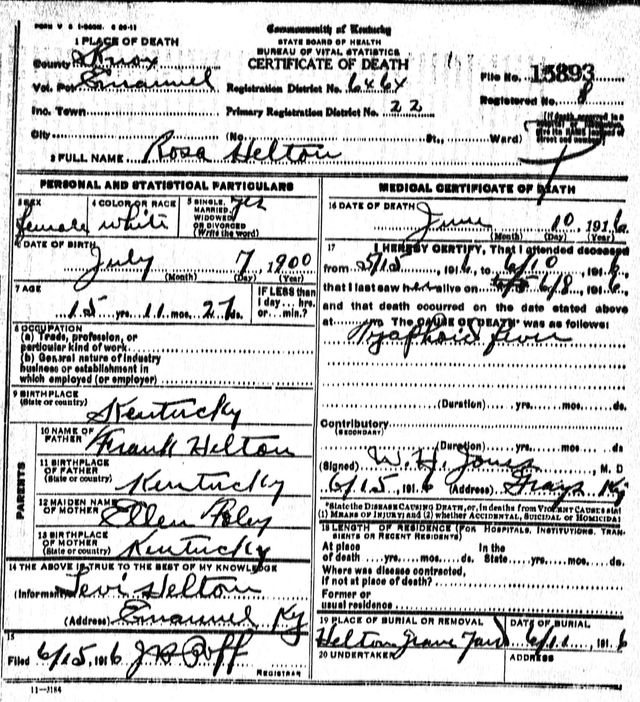 Commonwealth of Kentucky
STATE BOARD OF HEALTH
BUREAU OF VITAL STATISTICS
CERTIFICATE OF DEATH
1 PLACE OF DEATH
County Knox
Vot. Pct. Emanuel
Registration District No. 6464
File No. 15893
Inc. Town
Primary Registration District No. 22
Registered No. 8
City (No. St., Ward)
2 FULL NAME Rosa Helton
PERSONAL AND STATISTICAL PARTICULARS
3 SEX female
4 COLOR OR RACE white
5 SINGLE, MARRIED, WIDOWED OR DIVORCED (Write the word) yes
6 DATE OF BIRTH July 7, 1900
(Month) (Day) (Year)
7 AGE 15 yrs. 11 mos. 27 ds.
IF LESS than 1 day... hrs. or... min.?
8 OCCUPATION
(a) Trade, profession, or
particular kind of work
(b) General nature of industry
business or establishment in
which employed (or employer)
9 BIRTHPLACE
(State or country) Kentucky
PARENTS
10 NAME OF FATHER Frank Helton
11 BIRTHPLACE OF FATHER (State or country) Kentucky
12 MAIDEN NAME OF MOTHER Ellen Foley
13 BIRTHPLACE OF MOTHER (State or country) Kentucky
14 THE ABOVE IS TRUE TO THE BEST OF MY KNOWLEDGE
(Informant) Levi Helton
(Address) Emanuel Ky
15
Filed 6/15, 1916
REGISTRAR
11-3184
MEDICAL CERTIFICATE OF DEATH
16 DATE OF DEATH June 10, 1916
(Month) (Day) (Year)
17 I HEREBY CERTIFY, That I attended deceased
from 5/15, 1916, to 6/10, 1916,
that I last saw her alive on 6/8, 1916,
and that death occurred on the date stated above
at m. The CAUSE OF DEATH* was as follows:
Typhoid fever
(Duration) yrs. mos. ds.
Contributory
(SECONDARY)
(Duration) yrs. mos. ds
(Signed) W. H. Jones, M. D
6/15, 1916 (Address) Grays Ky
*State the DISEASE CAUSING DEATH, or, in deaths from VIOLENT CAUSES stat
(1) MEANS OF INJURY; and (2) whether ACCIDENTAL, SUICIDAL or HOMICIDAL
18 LENGTH OF RESIDENCE (FOR HOSPITALS, INSTITUTIONS, TRAN-
SIENTS OR RECENT RESIDENTS)
At place In the
of death yrs. mos. ds. State yrs. mos. ds.
Where was disease contracted,
if not at place of death?
Former or
usual residence
19 PLACE OF BURIAL OR REMOVAL
Helton Grave Yard
DATE OF BURIAL
6/11, 1916
20 UNDERTAKER
ADDRESS